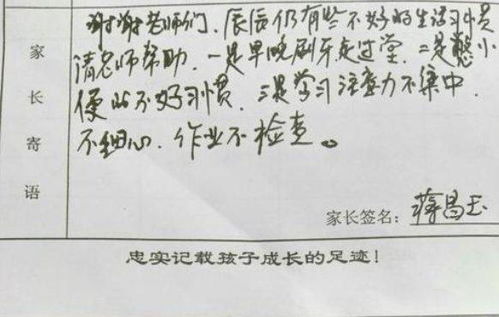 谢谢老师们、辰辰仍有些不好的生活习惯
请老师帮助. 一是早晚刷牙走过堂. 二是憋小
便此不好习惯. 三是学习注意力不集中.
不细心. 作业不检查。
家长寄语
家长签名: 蒋昌玉
忠实记载孩子成长的足迹!